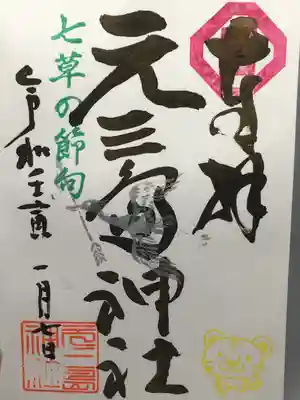 奉拝
元三島神社
七草の節句
令和壬寅 一月七日